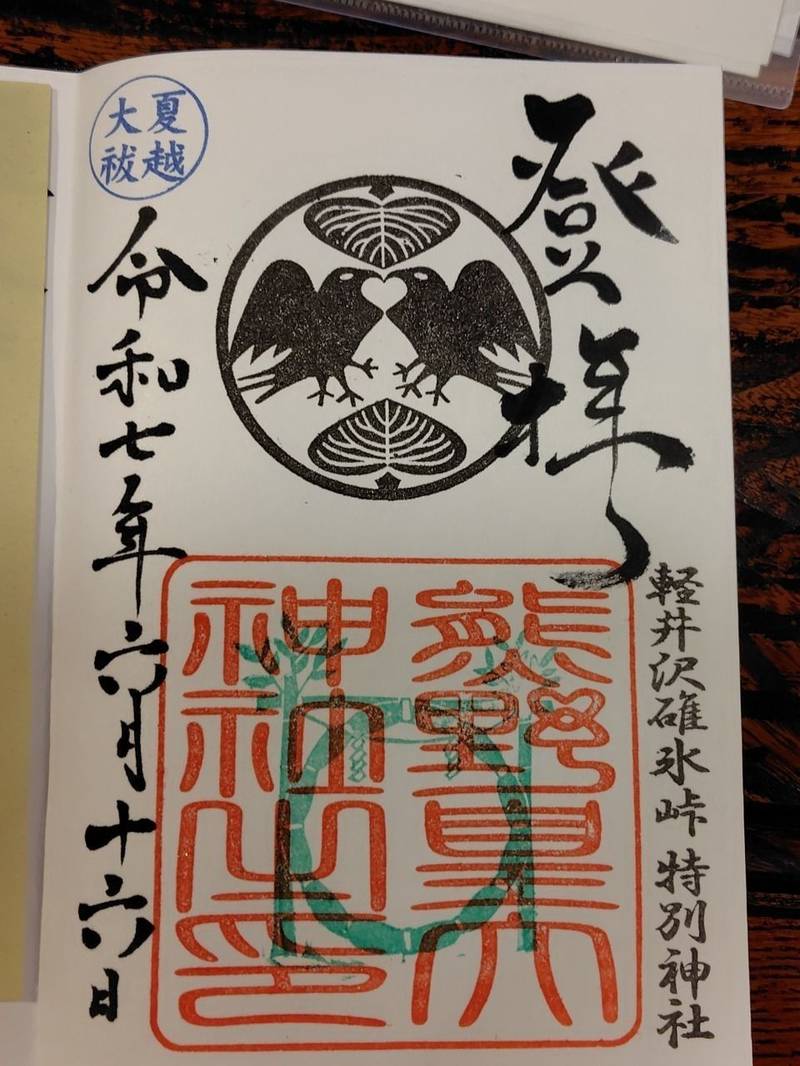 登拝
軽井沢碓氷峠 特別神社
熊野皇大
神社之印
夏越
大祓
令和七年六月十六日